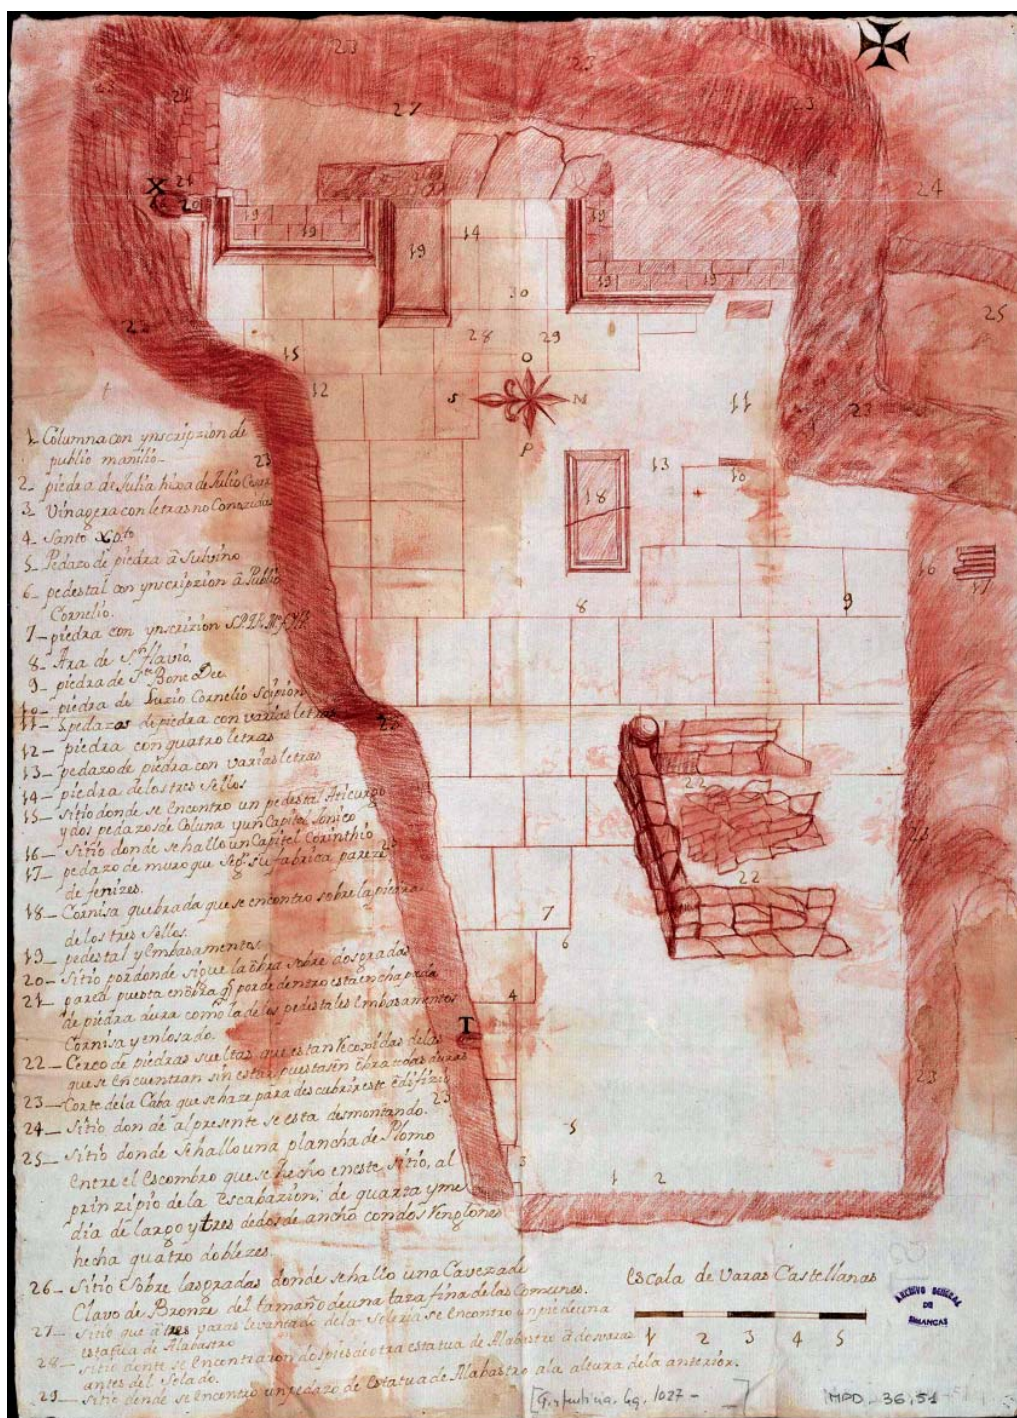 1_ Columna con ynscripzion de
publio manilio_
2_ piedra de Julia hixa de Julio Cesar
3_ Vinagera con letras no Conozidas
4_ Santo
5_ Pedazo de piedra â Sulvino
6_ pedestal con ynscripzion â Publio
Cornelio.
7_ piedra con ynscrizion
8_ Ara de Sn flavio.
9_ piedra de Bone Dee
10_ piedra de Luzio Cornelio Scipion
11_ pedazas de piedra con varias letras
12_ piedra con quatro letras
13_ pedazo de piedra con varias letras
14_ piedra de los tres Sellos
15_ Sitio donde se encontro un pedestal Aticurgo
y dos pedazos de Coluna y un Capitel Ionico
16_ Sitio donde se hallo un Capitel Corinthio
17_ pedazo de muro que Segn su fabrica pareze
de fenizes.
18_ Cornisa quebrada que se encontro sobre la piedra
de los tres Sellos.
19_ pedestal y Embasamentos
20_ Sitio por donde sigue la obra sobre dos gradas
21_ pared puesta en obra q por de dentro esta enchapada
de piedra dura como la de los pedestales Embasamentos
Cornisa y enlosado.
22_ Cerco de piedras sueltas que estan recoxidas de las
que se encuentran sin estar puestas en obra todas duras
23_ Corte de la Caba que se haze para descubrir este edifizio
24_ Sitio donde al presente se esta desmontando.
25_ Sitio donde se hallo una plancha de Plomo
entre el Escombro que se hecho en este sitio, al
prinzipio de la Escabazion, de quarta y me
dia de largo y tres dedos de ancho con dos Renglones
hecha quatro doblezes.
26_ Sitio Sobre las gradas donde se hallo una Caveza de
Clavo de Bronze del tamaño de una taza fina de las Comunes.
27_ Sitio que a tres varas levantado de la Soleria se encontro un pie de una
estatua de Alabastro
28_ Sitio donde se encontraron dos pies de otra estatua de Alabastro â dos varas
antes del Solado.
29_ Sitio donde se encontro un pedazo de Estatua de Alabastro a la altura de la anterior.
O
S N
P
X
T
Escala de Varas Castellanas
1 2 3 4 5
ARCHIVO GENERAL
DE
SIMANCAS
[G. y Justicia. Lg. 1027 - ]
MPD. 36,51